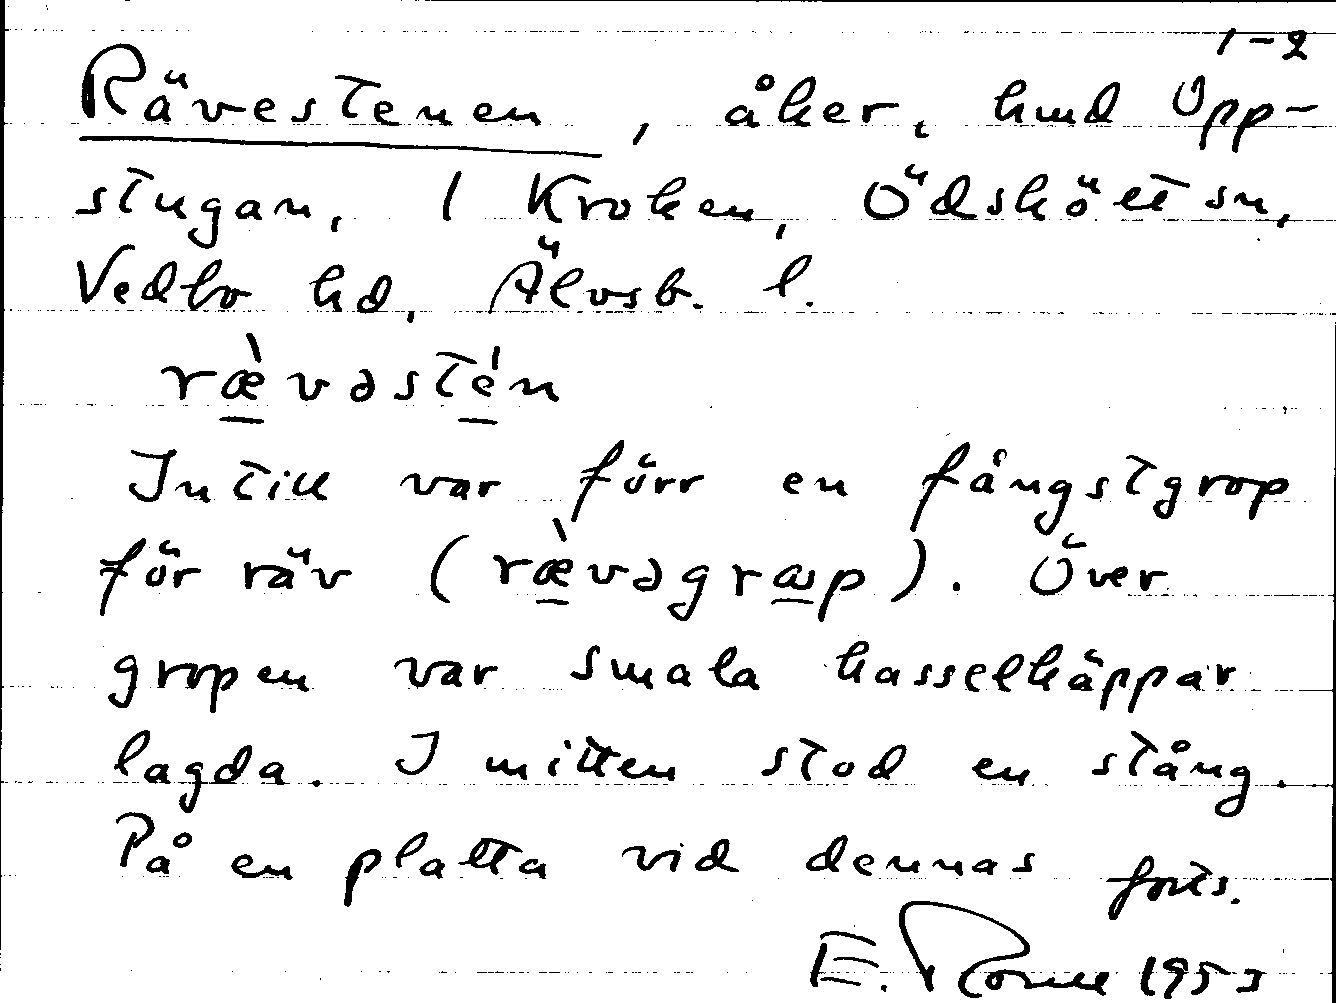 1-2
Rävestenen, åker, hmd Upp-
stugan, 1 Kroken, Ödskölt sn,
Vedbo hd, Älvsb. l.
ræ̀vəstén
Intill var förr en fångstgrop
för räv (ræ̀vəgrap). Över
gropen var smala hasselkäppar
lagda. I mitten stod en stång.
På en platta vid dennas forts.
E. 1953